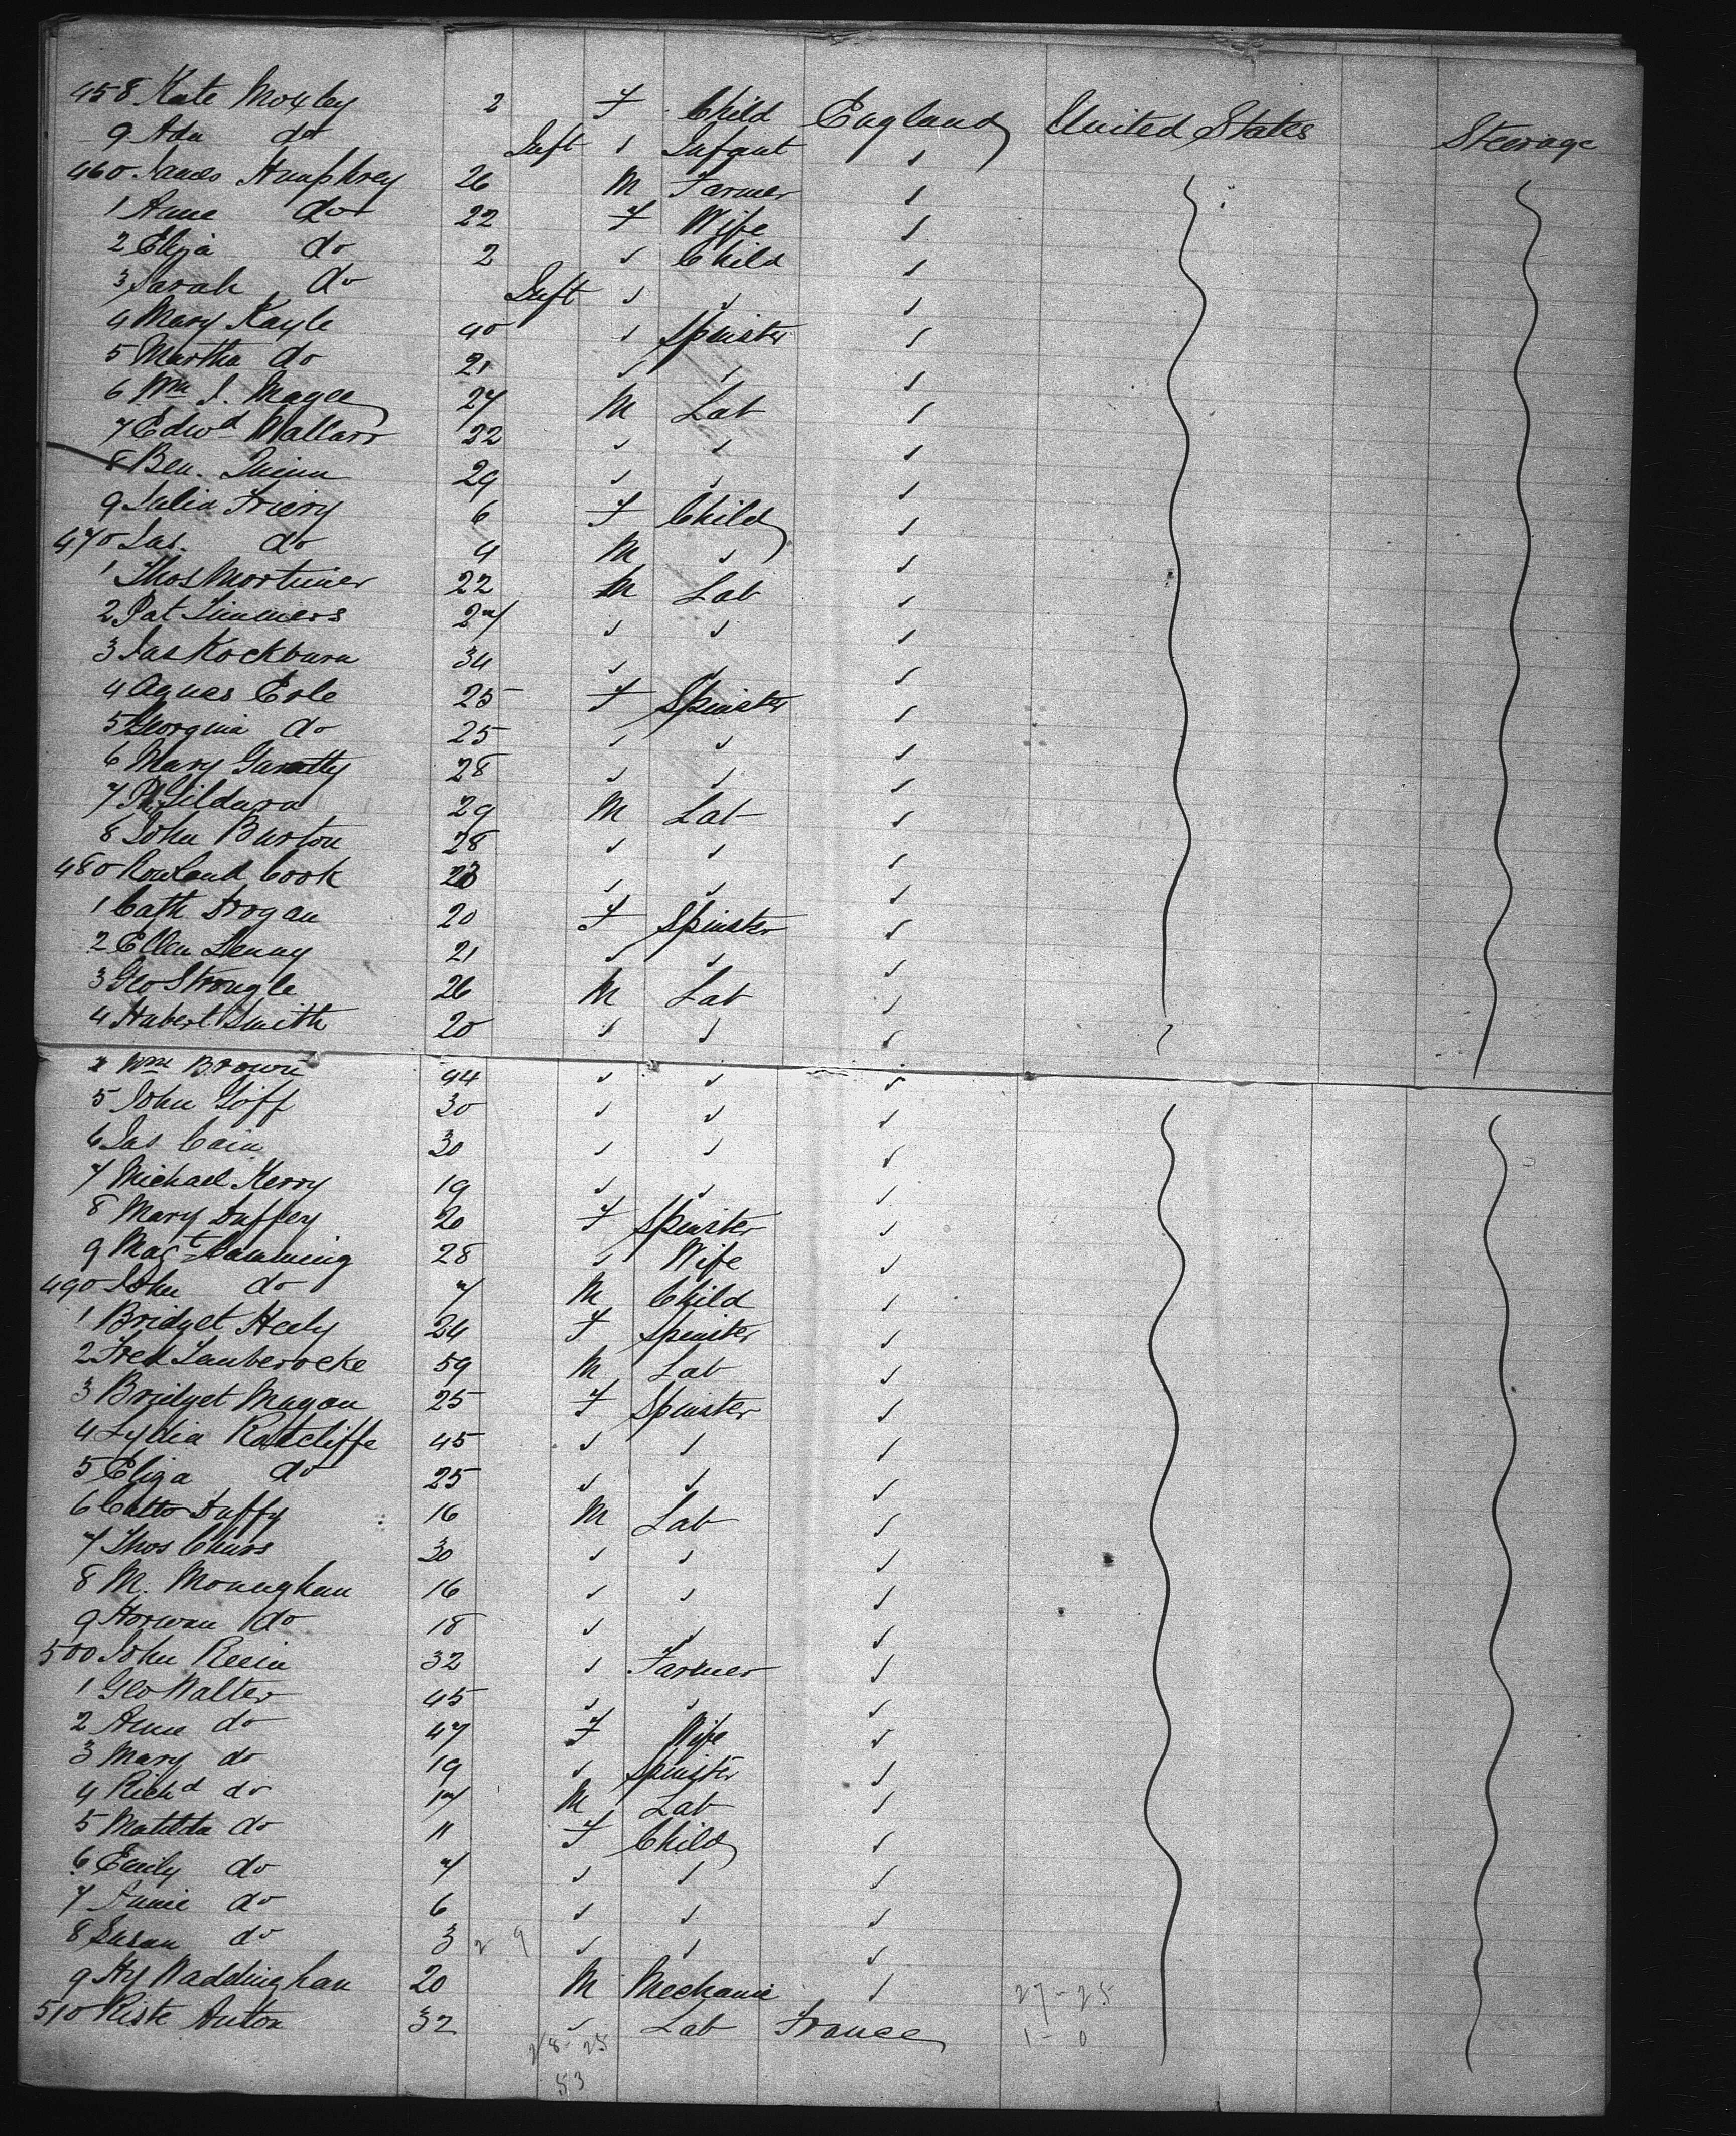 458 Kate Moxley 2 F Child England United States Steerage
9 Ada do Inft " Infant "
460 James Humphrey 26 M Farmer "
1 Anne do 22 F Wife "
2 Eliza do 2 " Child "
3 Sarah do Inft " " "
4 Mary Kayle 40 " Spinster "
5 Martha do 21 " " "
6 Wm J. Magee 27 M Lab "
7 Edwd Mallarr 22 " " "
8 Ben. Quinn 29 " " "
9 Julia Friery 6 F Child "
470 Jas. do 4 M " "
1 Thos Mortimer 22 M Lab "
2 Pat Simmers 27 " " "
3 Jas Rockburn 34 " " "
4 Agnes Erle 25 F Spinster "
5 Georgina do 25 " " "
6 Mary Garattty 28 " " "
7 Gildara 29 M Lab "
8 John Burton 28 " " "
480 Rowland Cook 23 " " "
1 Cath Drogan 20 F Spinster "
2 Ellen Lenny 21 " " "
3 Geo Strongle 26 M Lab "
4 Hubert Smith 20 " " "
Wm Brown 44 " " "
5 John Goff 30 " " "
6 Jas Cain 30 " " "
7 Michael Kerry 19 " " "
8 Mary Duffey 20 F Spinster "
9 Magt Camming 28 " Wife "
490 John do 7 M Child "
1 Bridget Heely 24 F Spinster "
2 Fred Lauberocke 59 M Lab "
3 Bridget Magan 25 F Spinster "
4 Lydia Ratcliffe 45 " " "
5 Eliza do 25 " " "
6 Duffy 16 M Lab "
7 Thos 30 " " "
8 M. Monaghan 16 " " "
9 Norwan do 18 " " "
500 John Reein 32 " Farmer "
1 Geo Walter 45 " " "
2 Anne do 47 F Wife "
3 Mary do 19 " Spinster "
4 Richd do 17 M Lab "
5 Matilda do 11 F Child "
6 Emily do 7 " " "
7 Annie do 6 " " "
8 Susan do 3 2 9 " " "
9 Hy Waddinghan 20 M Mechanic " 27-25
510 Riste Anton 32 " Lab France 1-0
28-25
53